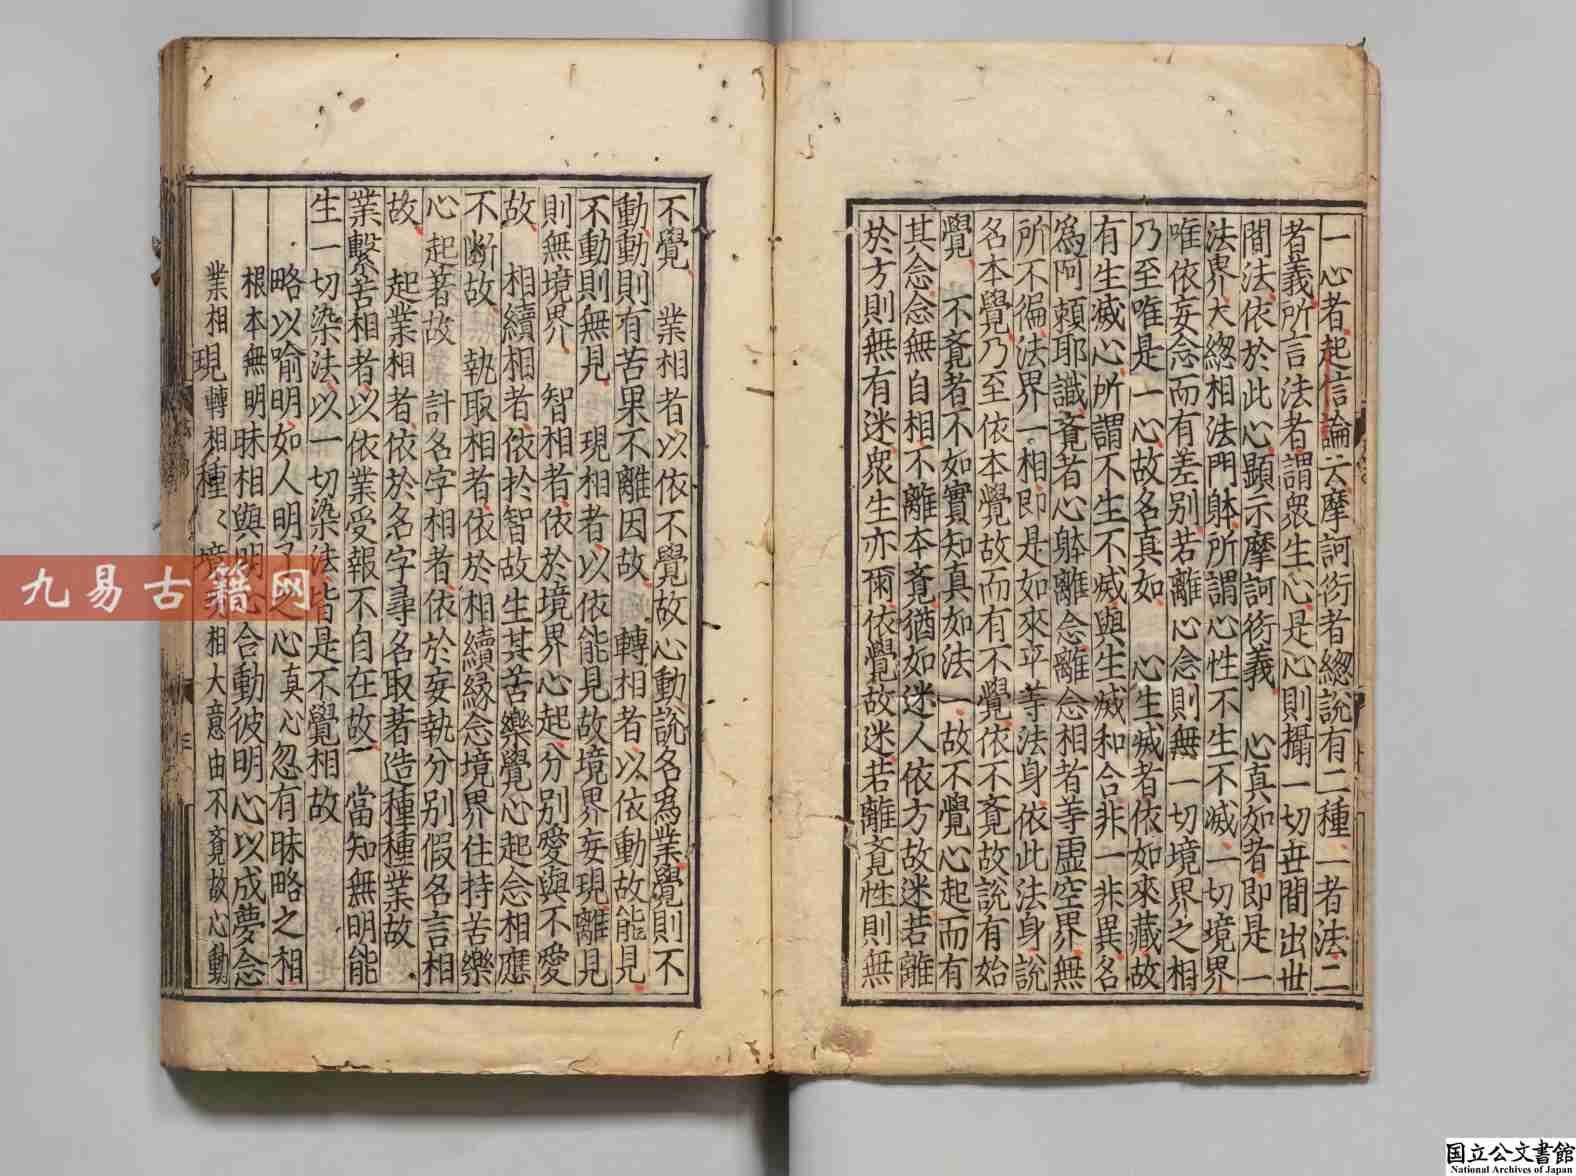 一心者起信論云摩訶衍者總說有二種一者法二
者義所言法者謂衆生心是心則攝一切世間出世
間法依於此心顯示摩訶衍義 心真如者即是一
法界大緫相法門躰所謂心性不生不滅一切境界
唯依妄念而有差别若離心念則無一切境界之相
乃至唯是一心故名真如 心生滅者依如來藏故
有生滅心所謂不生不滅與生滅和合非一非異名
爲阿頼耶識覔者心躰離念離念相者等虛空界無
所不徧法界一相即是如來平等法身依此法身說
名本覺乃至依本覺故而有不覺依不覔故說有始
覺 不覔者不如實知真如法一故不覺心起而有
其念念無自相不離本覔猶如迷人依方故迷若離
於方則無有迷衆生亦爾依覺故迷若離覔性則無
不覺 業相者以依不覺故心動說名爲業覺則不
動動則有苦果不離因故 轉相者以依動故能見
不動則無見 現相者以依能見故境界妄現離見
則無境界 智相者依於境界心起分别愛與不愛
故 相續相者依於智故生其苦樂覺心起念相應
不斷故 執取相者依於相續縁念境界住持苦樂
心起著故 計名字相者依於妄執分别假名言相
故 起業相者依於名字尋名取著造種種業故
業繫苦相者以依業受報不自在故 當知無明能
生一切染法以一切染法皆是不覺相故
略以喻明如人明了之心真心忽有昧略之相
根本無明昧相與明心合動彼明心以成夢念
業相現轉相種〻境 相大意由不覔故心動
九易古籍网
国立公文書館
National Archives of Japan